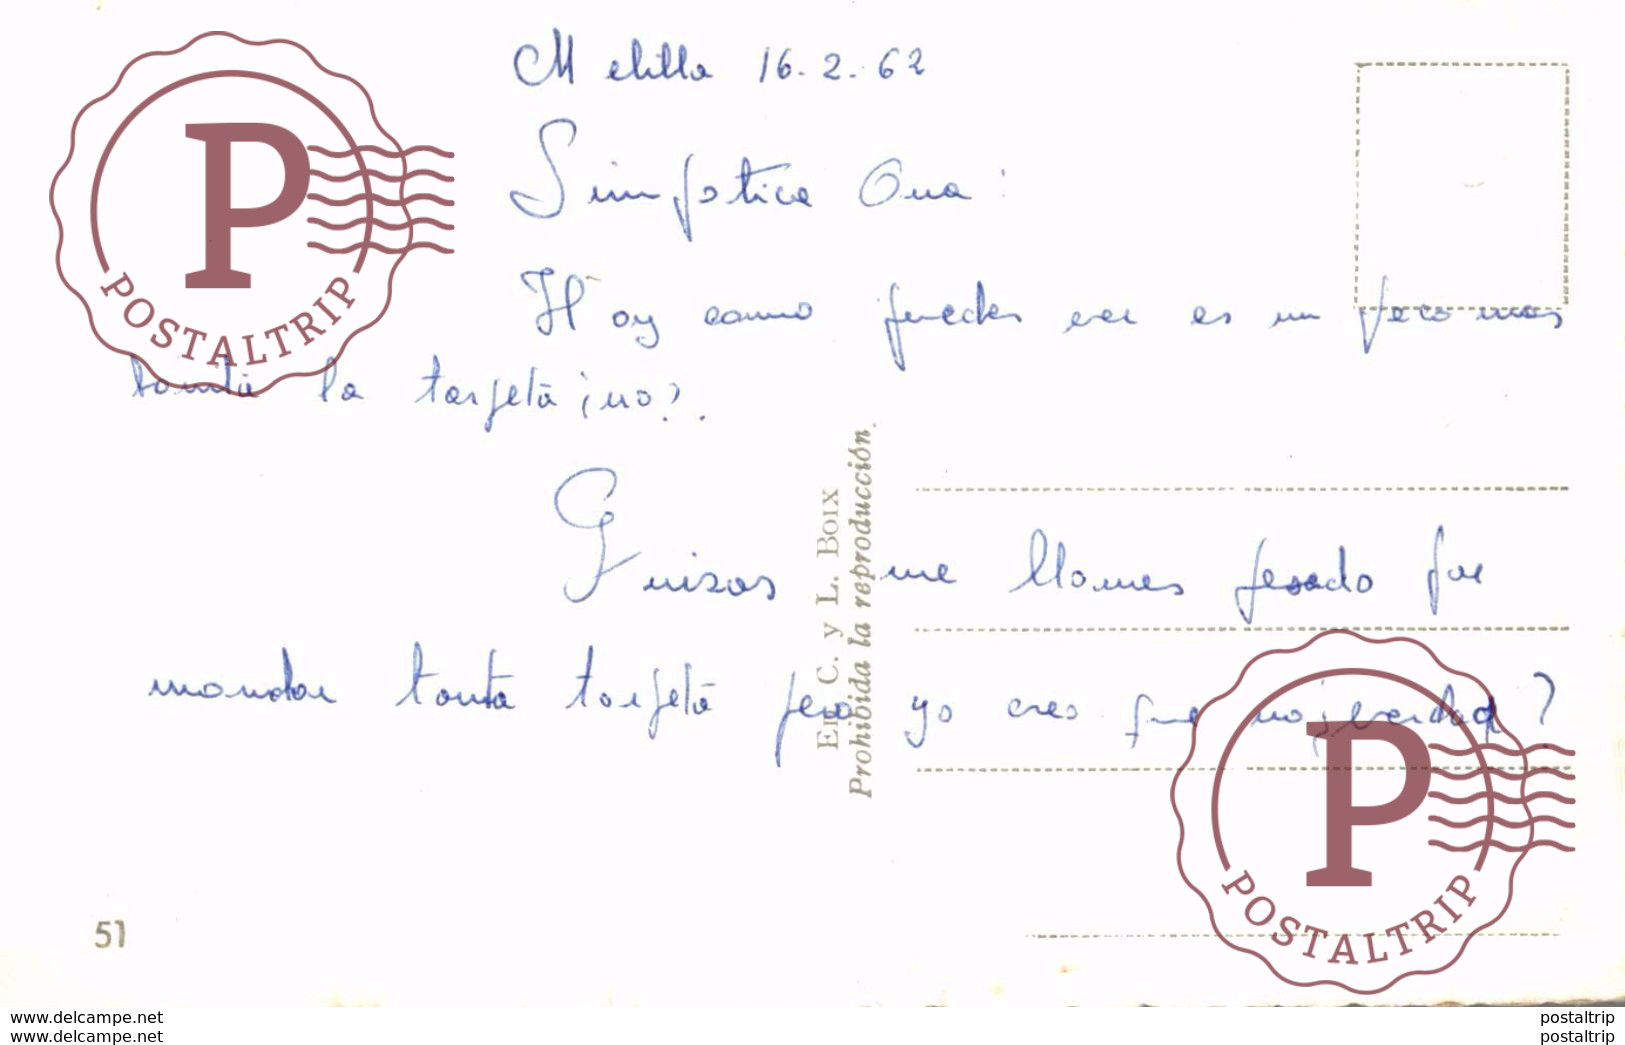 Melilla 16-2-62
Simpatica Ana:
Hoy como puedes ver es un poco mas
tonta la tarjeta ¡no?.
Quizas me llames pesado por
mandar tanta tarjeta pero yo creo que no ¡verdad?
Ed. C. y L. Boix
Prohibida la reproducción.
51
P
POSTALTRIP
P
POSTALTRIP
www.delcampe.net
www.delcampe.net
postaltrip
postaltrip